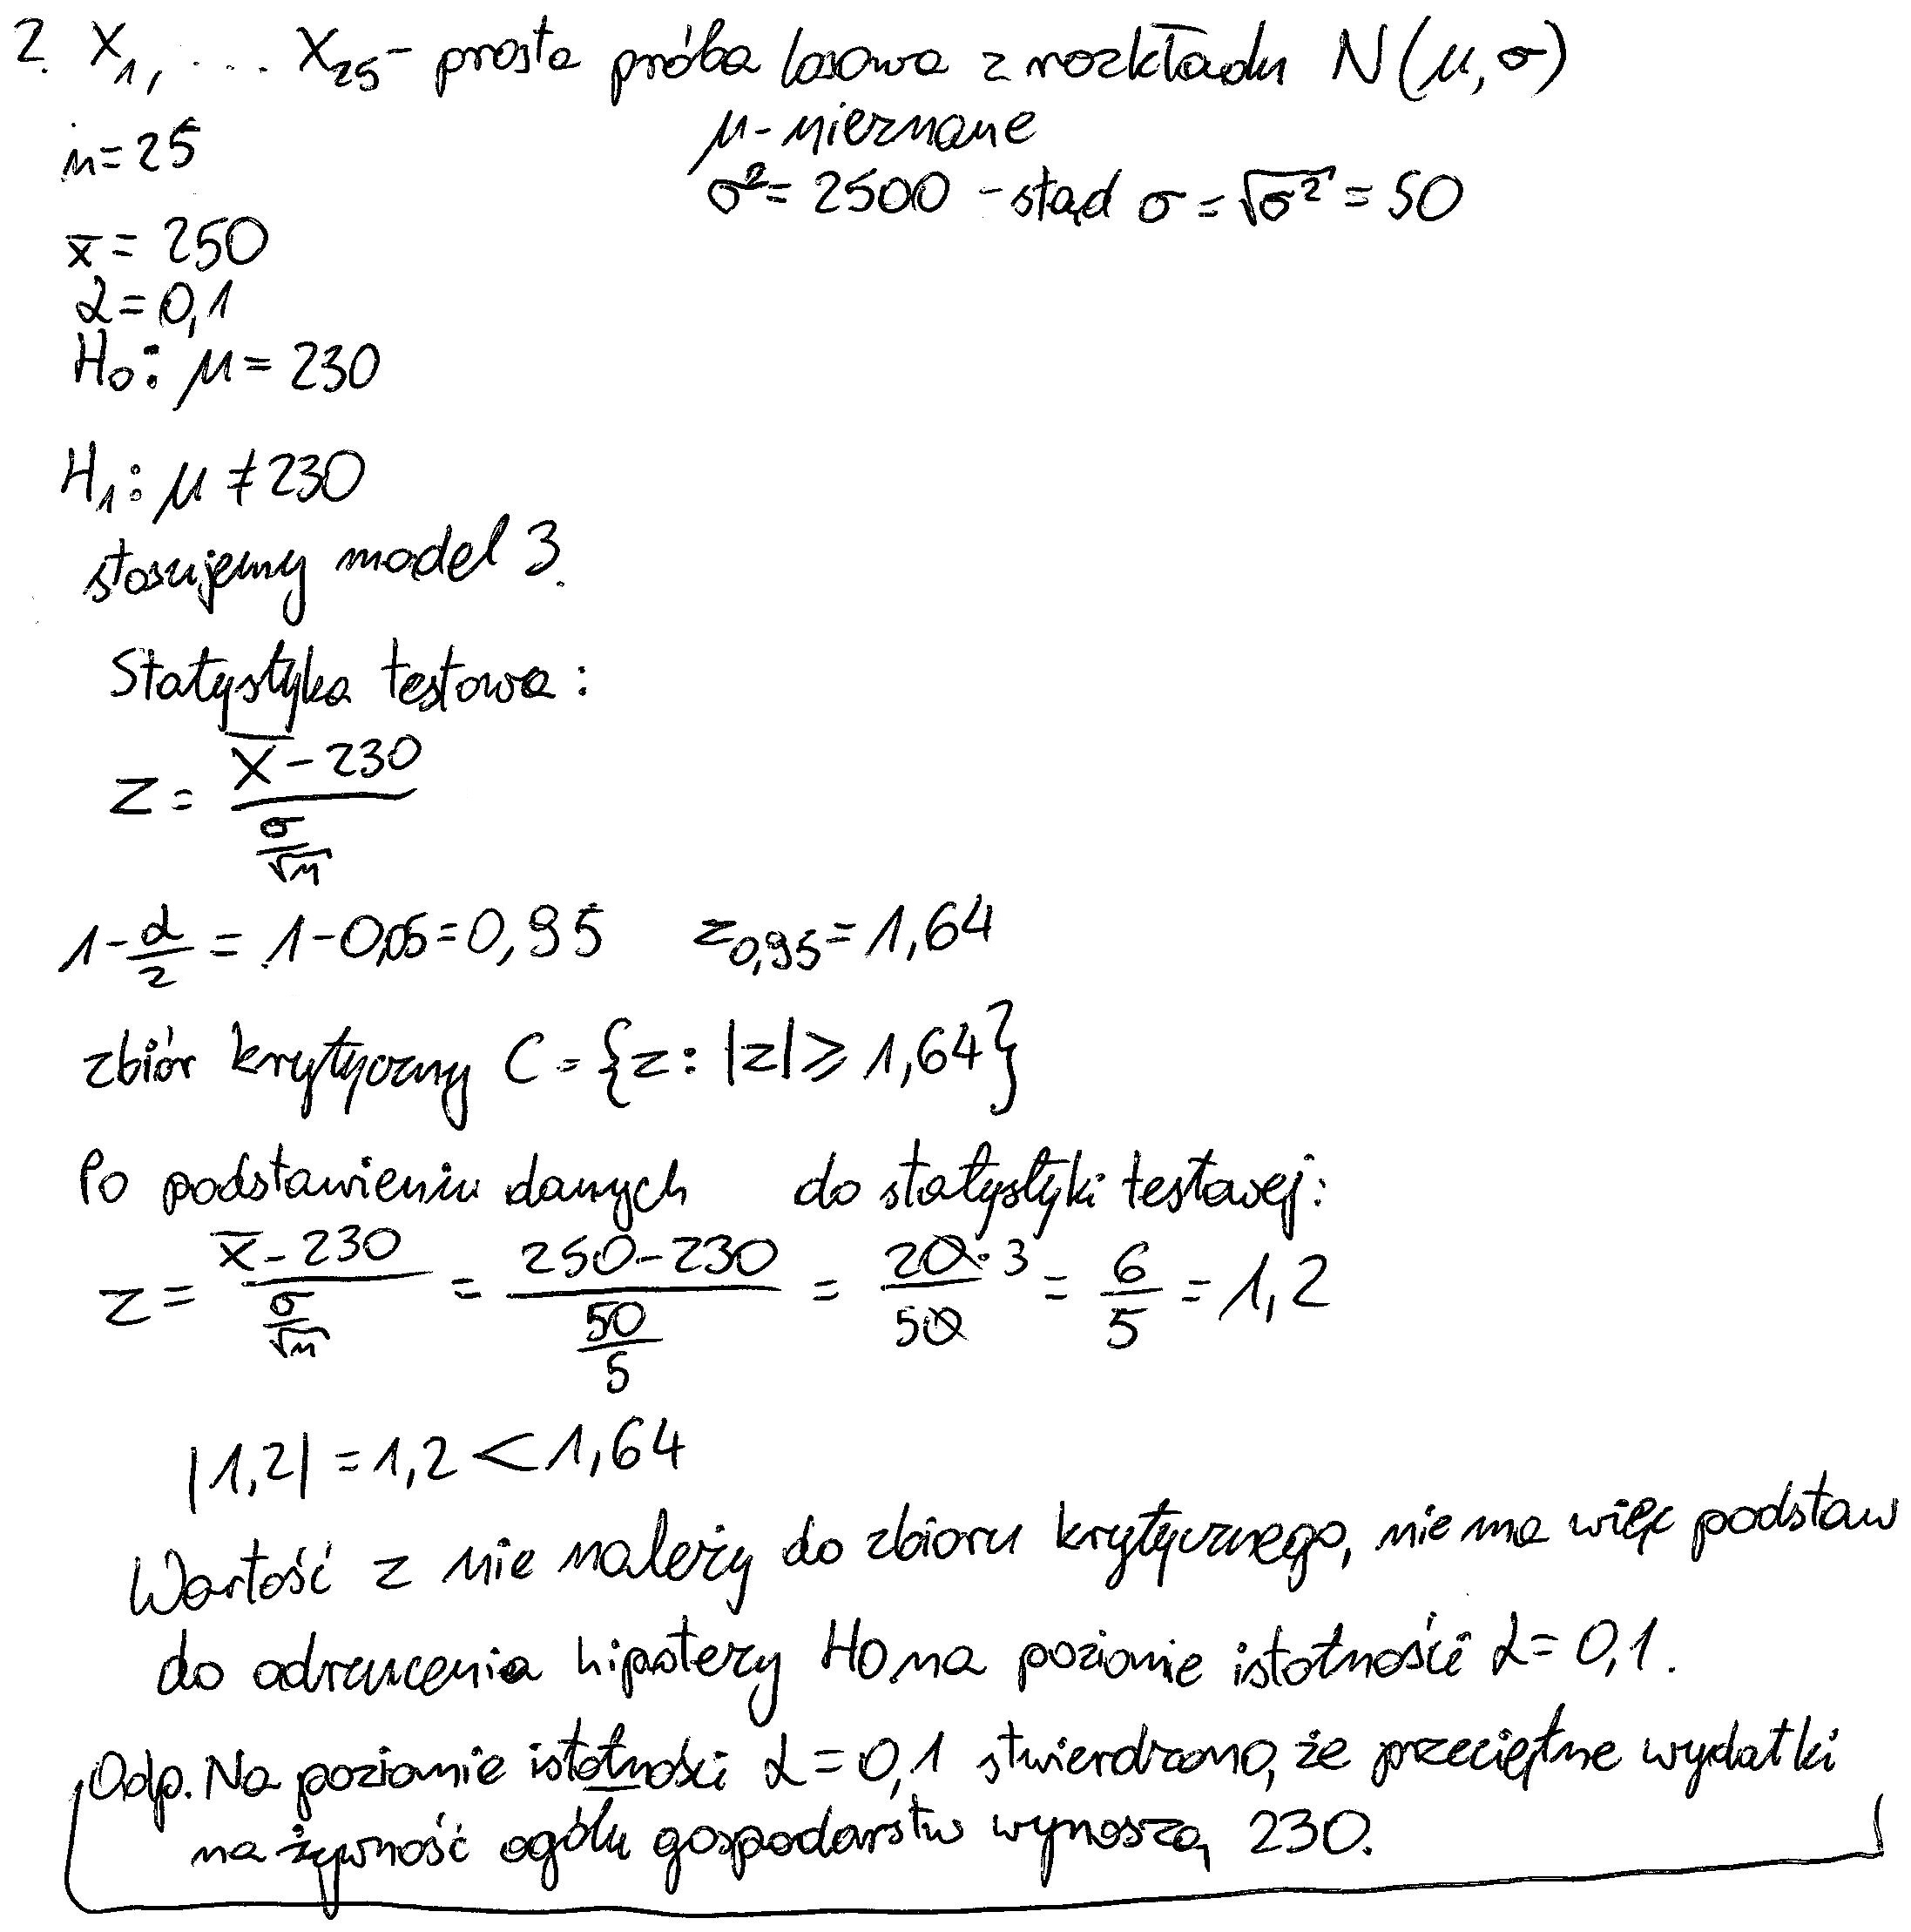 2. X₁, ... X₂₅ - prosta próba losowa z rozkładu N(μ, σ)
μ - nieznane
n = 25
σ² = 2500 - stąd σ = √σ² = 50
x̄ = 250
α = 0,1
H₀: μ = 230
H₁: μ ≠ 230
stosujemy model 3.
Statystyka testowa:
Z = (X̄ - 230) / (σ/√n)
1 - α/2 = 1 - 0,05 = 0,95 z₀,₉₅ = 1,64
zbiór krytyczny C = {z : |z| ≥ 1,64}
Po podstawieniu danych do statystyki testowej:
z = (x̄ - 230) / (σ/√n) = (250 - 230) / (50/5) = (20 · 3) / 50 = 6/5 = 1,2
|1,2| = 1,2 < 1,64
Wartość z nie należy do zbioru krytycznego, nie ma więc podstaw
do odrzucenia hipotezy H0 na poziomie istotności α = 0,1.
Odp. Na poziomie istotności α = 0,1 stwierdzono, że przeciętne wydatki
na żywność ogółu gospodarstw wynoszą 230.